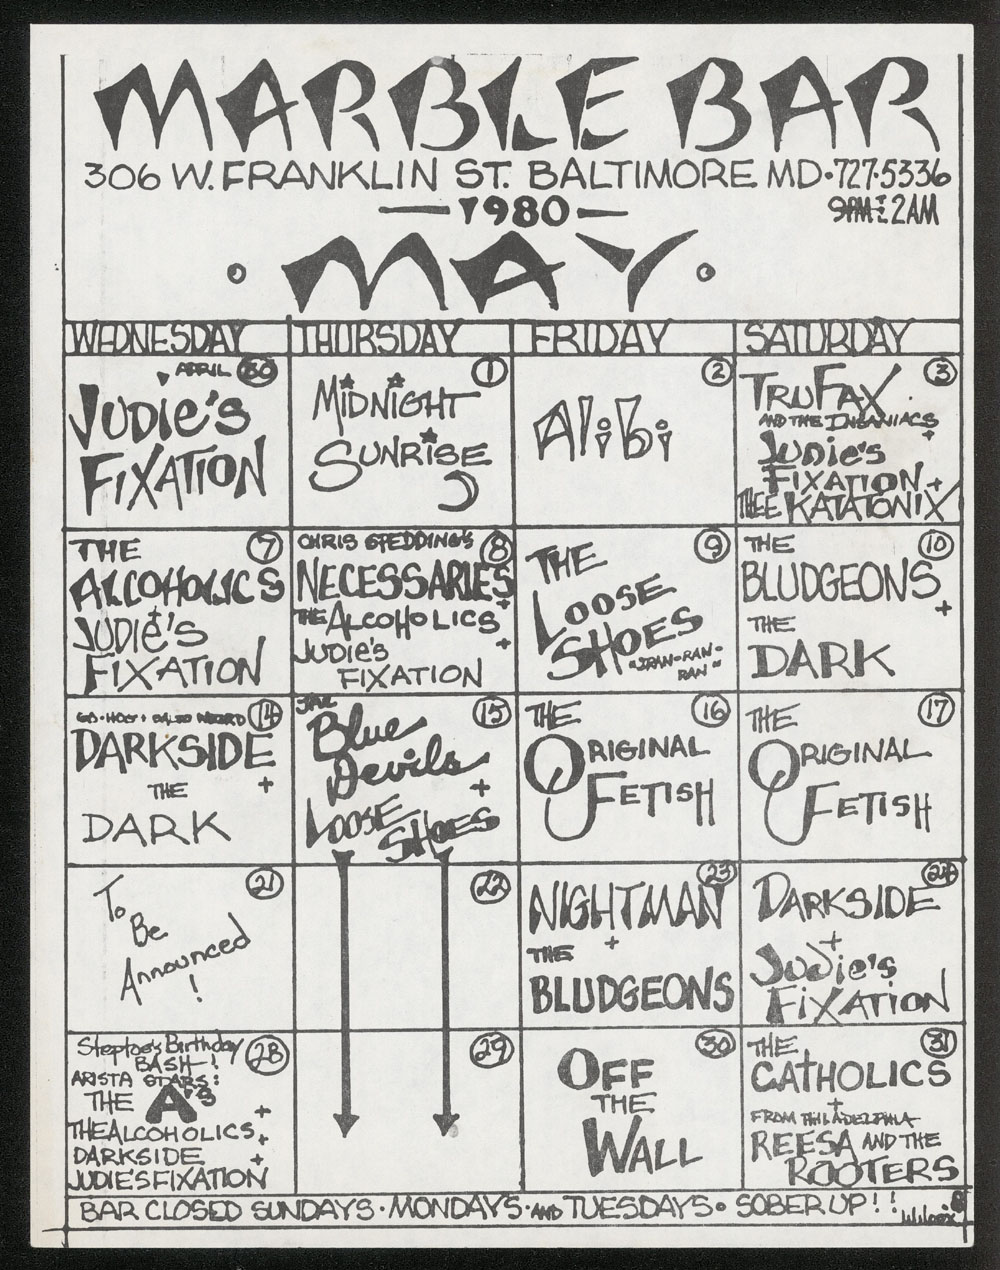 MARBLE BAR
306 W. FRANKLIN ST. BALTIMORE MD•727•5336
— 1980 —
9PM TIL 2AM
• MAY •
WEDNESDAY THURSDAY FRIDAY SATURDAY
APRIL 30
JUDIE'S
FIXATION
1
MIDNIGHT
SUNRISE
2
Alibi
3
TRUFAX
AND THE INSANIACS
+
JUDIE'S
FIXATION +
THEE KATATONIX
7
THE
ALCOHOLICS
+
JUDIE'S
FIXATION
8
CHRIS SPEDDING'S
NECESSARIES
+
THE ALCOHOLICS
+
JUDIE'S
FIXATION
9
THE
LOOSE
SHOES
"JRAN-RAN-
RAN"
10
THE
BLUDGEONS
+
THE
DARK
14
DARKSIDE
+
THE
DARK
15
THE
Blue
Devils
+
LOOSE
SHOES
16
THE
ORIGINAL
FETISH
17
THE
ORIGINAL
FETISH
21
To
Be
Announced
!
22
23
NIGHTMAN
+
THE
BLUDGEONS
24
DARKSIDE
+
JUDIE'S
FIXATION
28
Steptoe's Birthday
BASH!
ARISTA STARS:
THE A'S
+
THE ALCOHOLICS +
DARKSIDE +
JUDIE'S FIXATION
29
30
OFF
THE
WALL
31
THE
CATHOLICS
+
FROM PHILADELPHIA
REESA AND THE
ROOTERS
BAR CLOSED SUNDAYS • MONDAYS • AND TUESDAYS • SOBER UP!!